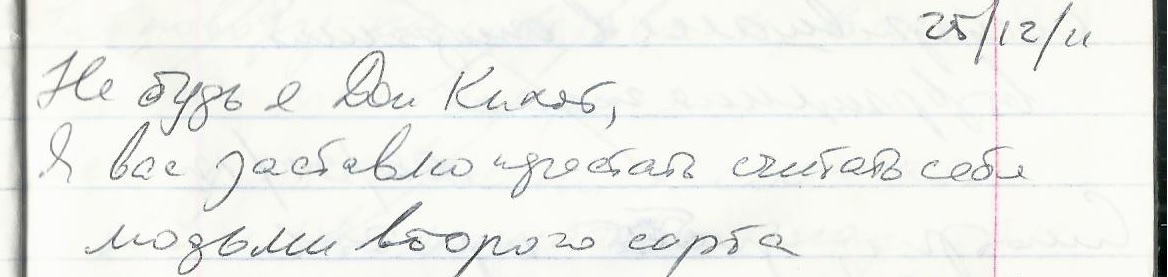 25/12/11
Не будь я Дон Кихот,
Я вас заставлю перестать считать себя
людьми второго сорта